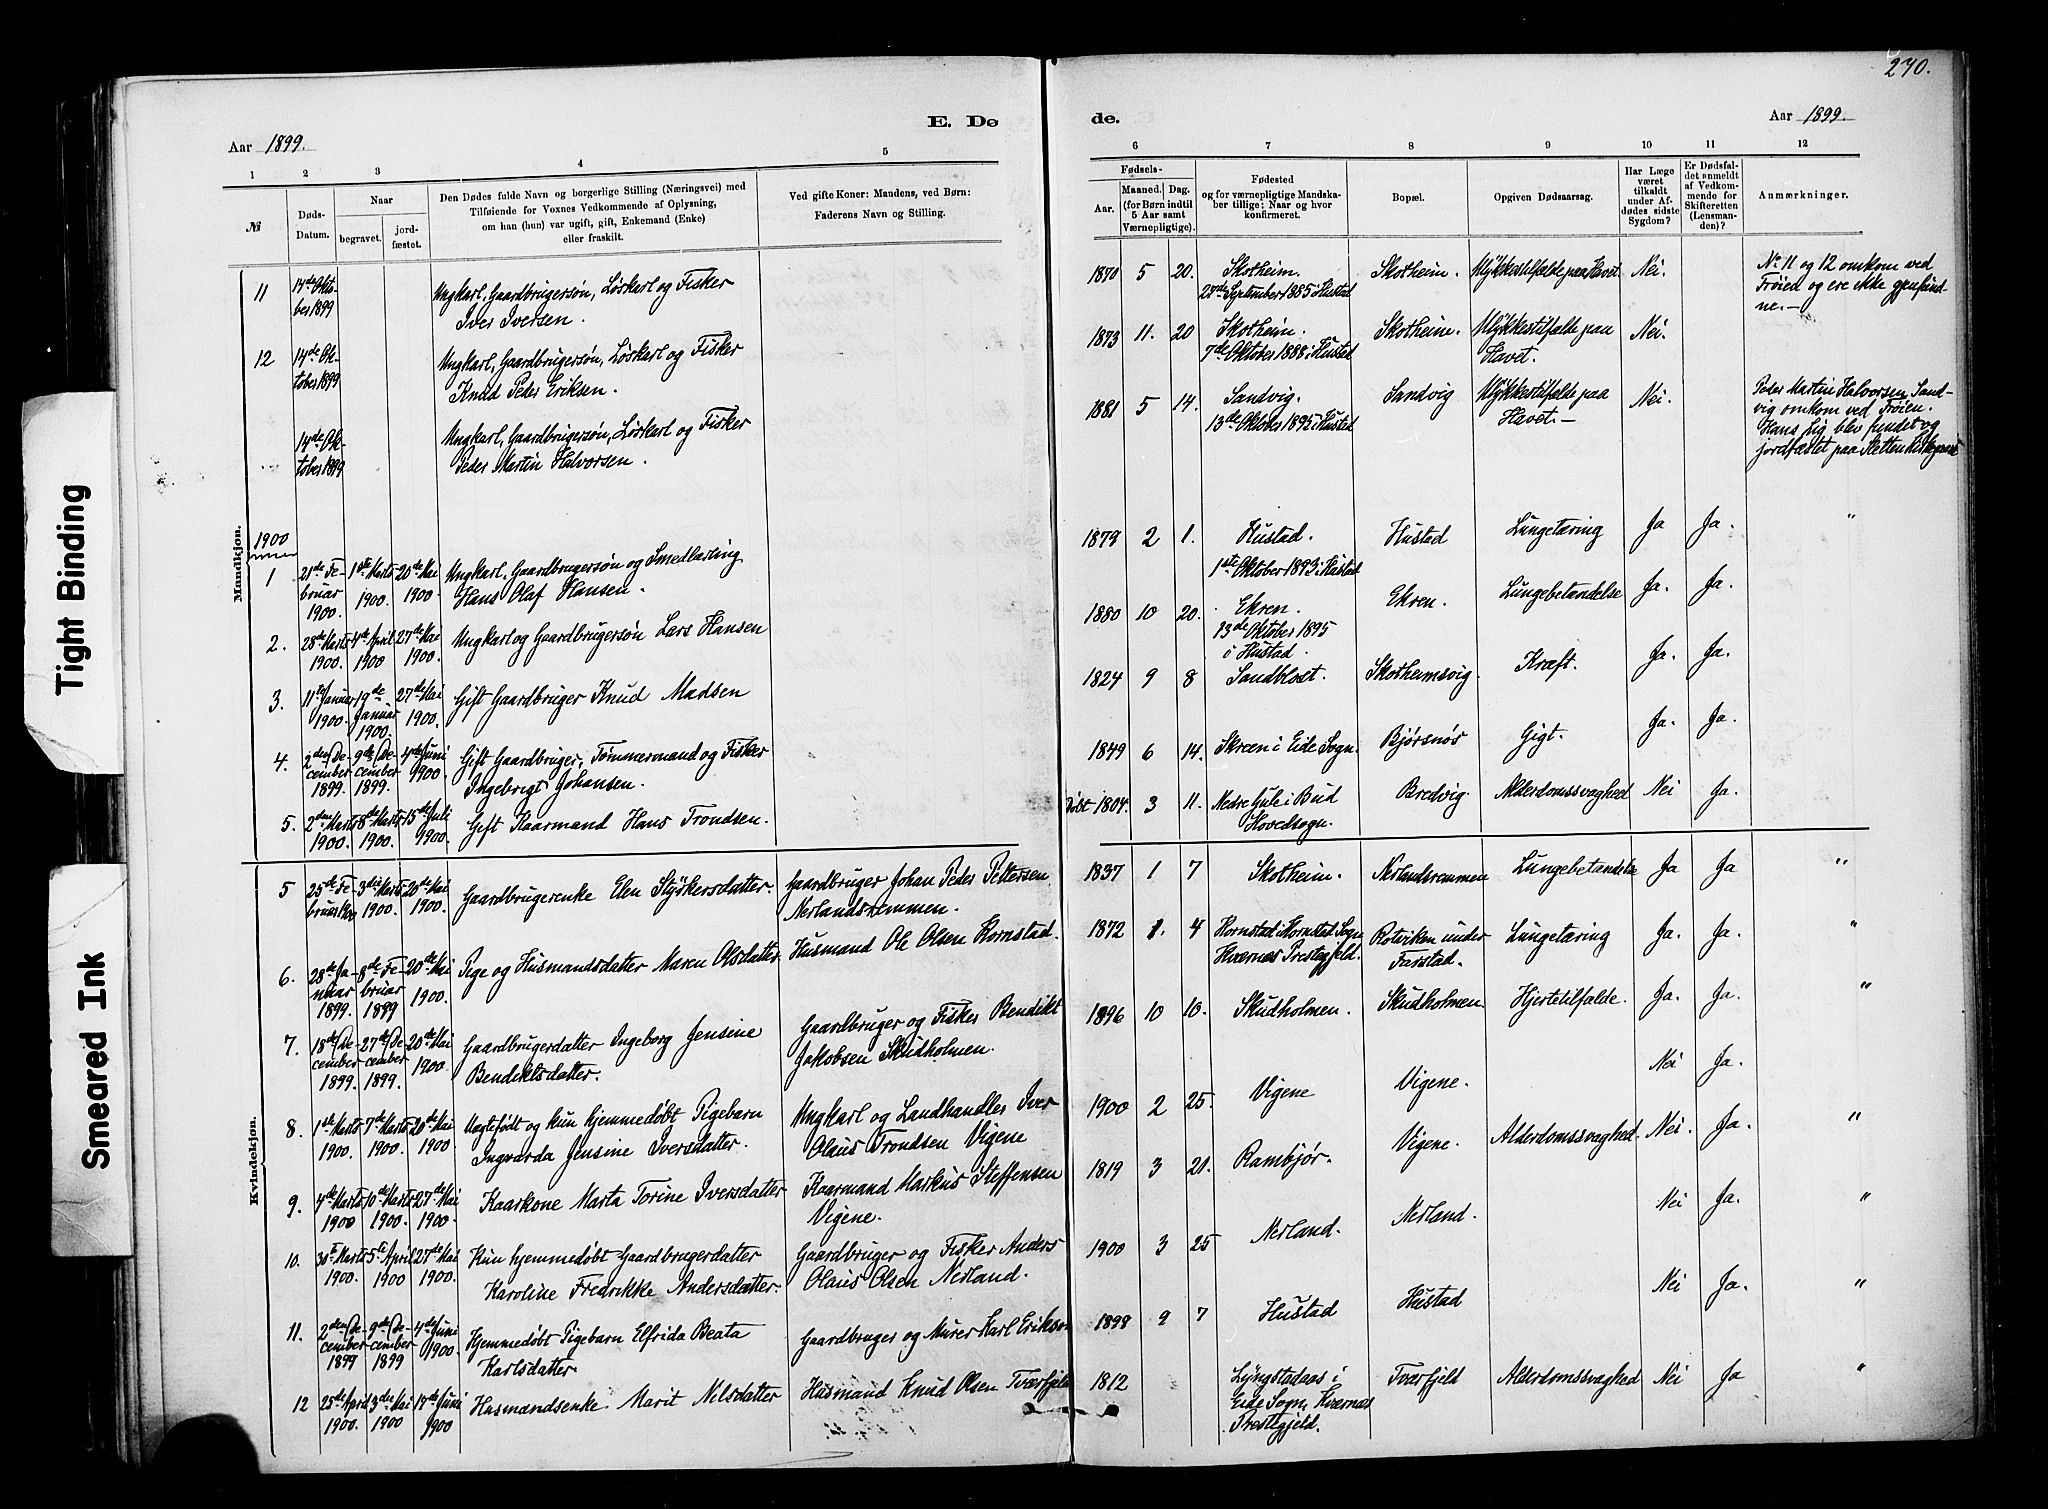 270.
E. Dø
de.
Aar 1899.
Aar 1899.
1 2 3 4 5
6 7 8 9 10 11 12
№
Døds-
Datum.
Naar
begravet.
jord-
fæstet.
Den Dødes fulde Navn og borgerlige Stilling (Næringsvei) med
Tilføiende for Voxnes Vedkommende af Oplysning,
om han (hun) var ugift, gift, Enkemand (Enke)
eller fraskilt.
Ved gifte Koner: Mandens, ved Børn:
Faderens Navn og Stilling.
Fødsels-
Aar.
Maaned. Dag.
(for Børn indtil
5 Aar samt
Værnepligtige).
Fødested
og for værnepligtige Mandska-
ber tillige: Naar og hvor
konfirmeret.
Bopæl.
Opgiven Dødsaarsag.
Har Læge
været
tilkaldt
under Af-
dødes sidste
Sygdom?
Er Dødsfal-
det anmeldt
af Vedkom-
mende for
Skifteretten
(Lensman-
den)?
Anmærkninger.
Mandkjøn.
11 14de Okto-
ber 1899
Ungkarl, Gaardbrugersøn, Løskarl og Fisker
Iver Iversen.
1870 5 20. Skotheim.
27de September 1885 i Hustad
Skotheim. Ulykkestilfælde paa Havet Nei.
No 11 og 12 omkom ved
Frøien og ere ikke gjenfund-
ne. —
12 14de Ok-
tober 1899
Ungkarl, Gaardbrugersøn, Løskarl og Fisker
Knud Peder Eriksen.
1873 11. 20 Skotheim.
7de Oktober 1888 i Hustad
Skotheim. Ulykkestilfælde paa
Havet.
Nei.
14de Ok-
tober 1899
Ungkarl, Gaardbrugersøn, Løskarl og Fisker
Peder Martin Halvorsen.
1881 5 14. Sandvig.
13de Oktober 1895 i Hustad
Sandvig Ulykkestilfælde paa
Havet. —
Nei.
Peder Martin Halvorsen Sand-
vig omkom ved Frøien.
Hans Lig blev fundet og
jordfæstet paa Sletten
1900
1 21de Fe-
bruar
1900.
1ste Marts
1900.
20de Mai
1900.
Ungkarl, Gaardbrugersøn og Smedlærling
Hans Olaf Hansen.
1879 2 1. Hustad.
1ste Oktober 1893 i Hustad
Hustad Lungetæring Ja Ja. "
2. 28de Marts
1900.
4de April
1900
27de Mai
1900.
Ungkarl og Gaardbrugersøn Lars Hansen
1880 10 20. Ekren.
13de Oktober 1895
i Hustad.
Ekren. Lungebetændelse Ja. Ja.
3. 11te Januar
1900.
19de
Januar
1900.
27de Mai
1900.
Gift Gaardbruger Knud Madsen
1824 9 8 Sandblost. Skotheimsvig. Kræft. Ja. Ja.
4. 2den De-
cember
1899.
9de De-
cember
1899.
4de Juni
1900.
Gift Gaardbruger, Tømmermand og Fisker
Ingebrigt Johansen.
1849 6 14. Skreen i Eide Sogn. Bjørsnøs Gigt. Ja. Ja.
5. 2den Marts
1900.
8de Marts
1900.
15de Juli
1900.
Gift Kaarmand Hans Trondsen.
Døbt 1804. 3 11. Nedre Gule i Bud
Hovedsogn.
Bredvig. Alderdomssvaghed Nei Ja.
Kvindekjøn.
5 25de Fe-
bruar
3die Marts
1900.
20de Mai
1900.
Gaardbrugerenke Elen Styrkersdatter.
Gaardbruger Johan Peder Pettersen
Nerlandsremmen.
1837 1 7 Skotheim. Nerlandsremmen Lungebetændelse Ja Ja "
6. 28de Ja-
nuar
1899.
8de Fe-
bruar
1899
20de Mai
1900.
Pige og Husmandsdatter Maren Olsdatter
Husmand Ole Olsen Kornstad.
1872 1. 4 Kornstad i Kornstad Sogn
Kvernes Prestegjeld.
Rotviken under
Farstad.
Lungetæring Ja. Ja. "
7. 18de De-
cember
1899.
27de De-
cember
1899.
20de Mai
1900.
Gaardbrugerdatter Ingeborg Jensine
Bendiktsdatter.
Gaardbruger og Fisker Bendikt
Jakobsen Skudholmen.
1896 10 10. Skudholmen. Skudholmen. Hjertetilfælde. Ja. Ja. "
8. 1ste Marts
1900.
7de Marts
1900.
20de Mai
1900
Uægtefødt og kun hjemmedøbt Pigebarn
Ingvarda Jensine Iversdatter.
Ungkarl og Landhandler Iver
Olaus Trondsen Vigene
1900 2 25. Vigene Vigene. Nei Ja.
9. 4de Marts
1900
10de Marts
1900.
27de Mai
1900.
Kaarkone Marta Torine Iversdatter
Kaarmand Markus Steffensen
Vigene.
1819 3 21. Rambjør. Vigene. Alderdomssvaghed. Nei. Ja. "
10. 30te Marts
1900.
5te April
1900
27de Mai
1900.
Kun hjemmedøbt Gaardbrugerdatter
Karoline Fredrikke Andersdatter.
Gaardbruger og Fisker Anders
Olaus Olsen Nerland.
1900 3 25 Nerland. Nerland. Nei Ja. "
11. 2den De-
cember
1899
9de De-
cember
1899
4de Juni
1900.
Hjemmedøbt Pigebarn Elfrida Beata
Karlsdatter.
Gaardbruger og Murer Karl Eriksen
1899 9 7 Hustad Hustad Nei Ja. "
12 25de April
1900.
3die Mai
1900
17de Juni
1900
Husmandsenke Marit Nilsdatter
Husmand Knud Olsen Tværfjeld
1812 Lyngstadaas i
Eide Sogn, Kvernes
Prestegjeld.
Tværfjeld Alderdomssvaghed Nei Ja "
Tight Binding
Smeared Ink